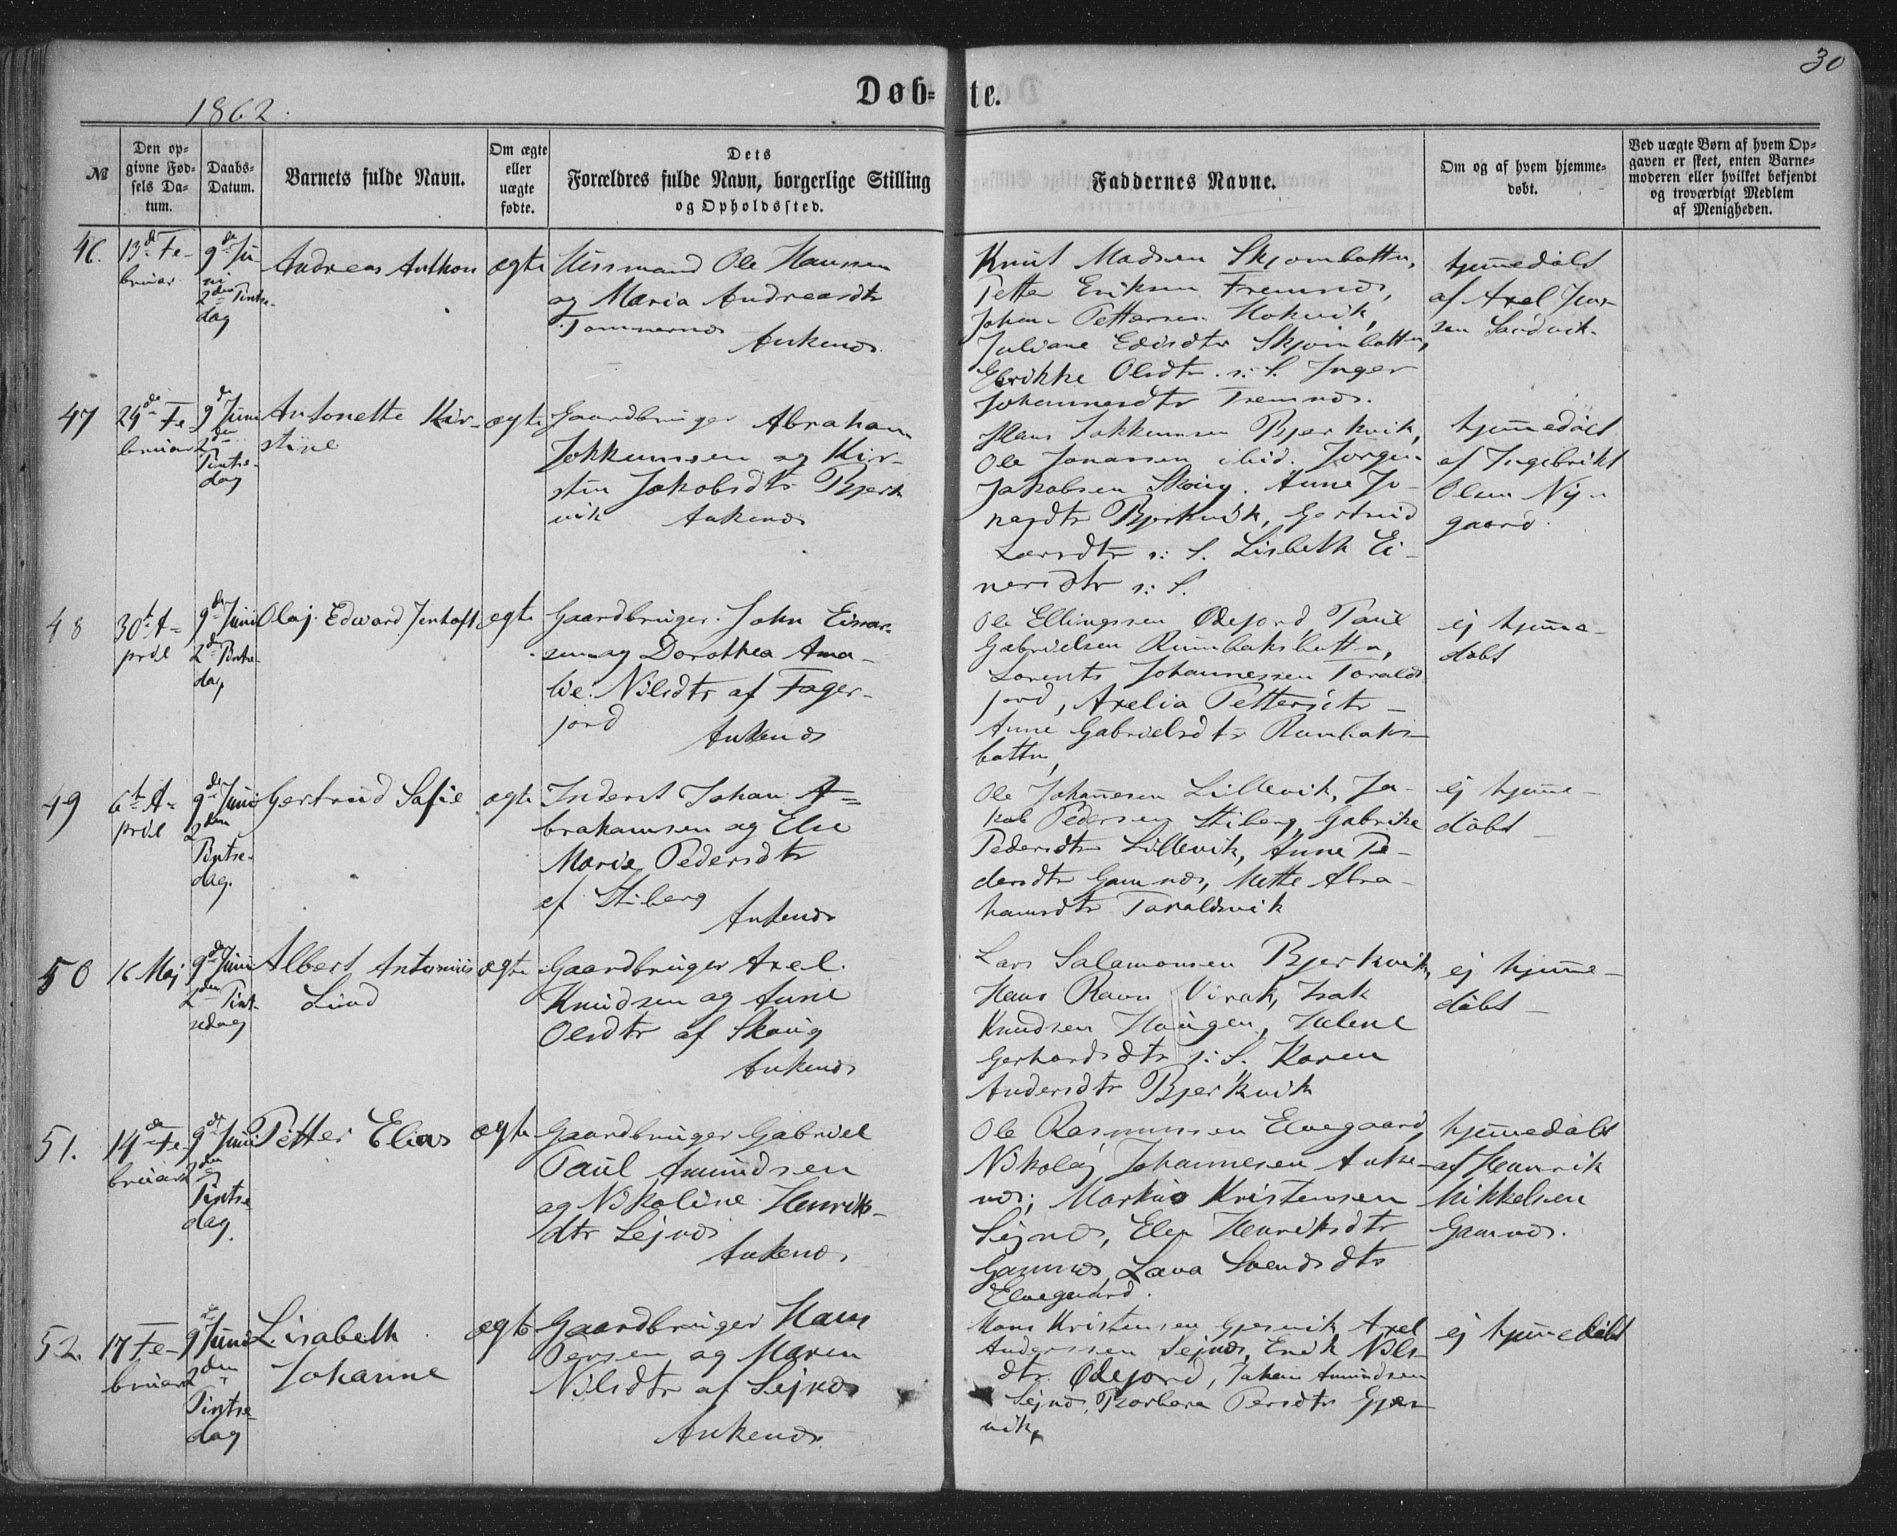 30
Døb-
te.
1862.
№
Den op-
givne Fød-
sels Da-
tum.
Daabs-
Datum.
Barnets fulde Navn.
Om ægte
eller
uægte
fødte.
Dets
Forældres fulde Navn, borgerlige Stilling
og Opholdssted.
Faddernes Navne.
Om og af hvem hjemme-
døbt.
Ved uægte Børn af hvem Op-
gaven er skeet, enten Barne-
moderen eller hvilket bekjendt
og troværdigt Medlem
af Menigheden.
46.
13de Fe-
bruar
9de Ju
ni
2den Pintse-
dag
Andreas Anthon
ægte
Husmand Ole Hanssen
og Maria Andreasdtr
Tømmernæs
Ankenæs
Knut Madsen Skjombotten,
Petter Eriksen Fremnæs,
Johan Pettersen Hokvik,
Juliane Skjombotten,
Olsdtr s: S. Inger
Johannesdtr Fremnæs.
hjemmedøbt
af Axel Jen-
sen Sandvik.
47
24de Fe-
bruar
9de Juni
2den
Pintse-
dag
Antonette Kir-
stine
ægte
Gaardbruger Abraham
Jokkumsen og Kir-
sten Jakobsdtr Bjerk
vik Ankenæs
Hans Jokkumsen Bjerkvik,
Ole Jonassen ibid. Jørgen
Jakobsen Skoug. Anne Jo-
nasdtr Bjerkvik, Gertrud
Larsdtr s: S. Lisbeth Ei-
nersdtr s: S.
hjemmedøbt
af Ingebrikt
Olsen Ny-
gaard.
48
30te A-
pril
9de Juni
2den Pintse-
dag
Olaj Edward Jentoft
ægte
Gaardbruger John Einar-
sen og Dorothea Ama-
lie Nilsdtr af Fager-
jord
Ankenæs
Ole Ellingssen Ødejord, Paul
Gabrielsen Rumbaksbotten,
Lorents Johannessen Toralds
jord, Axelia Pettersdtr
Anne Gabrielsdtr Rumbaks-
botten,
ej hjemme-
døbt
49
6te A-
pril
9de Juni
2den
Pintse-
dag.
Gertrud Sofie
ægte
Inderst Johan A-
brahamsen og Else
Marie Pedersdtr
af Stiberg
Ankenæs
Ole Johannesen Lillevik, Ja-
kob Pedersen Stiberg, Gabrike
Pedersdtr Lillevik, Anne Pe-
dersdtr Gamnæs, Mette Abra-
hamsdtr Taraldsvik
ej hjemme-
døbt
50
16 Maj
9de Juni
2den Pint-
sedag
Albert Antonius
Lind
ægte
Gaardbruger Axel
Knudsen og Anne
Olsdtr af Skoug
Ankenæs
Lars Salamonsen Bjerkvik,
Hans Ravn Virak, Isak
Knudsen Haugen, Helene
Gerhardsdtr s: S. Karen
Andersdtr Bjerkvik
ej hjemme-
døbt
51.
14de Fe-
bruar
9de Juni
2den
Pintse-
dag.
Petter Elias
ægte
Gaardbruger Gabriel
Paul Amundsen
og Nikoline Henriks-
dtr Lejnæs
Ankenæs
Ole Rasmussen Elvegaard,
Nikolaj Johannesen Anke-
næs; Markus Kristensen
Sejnæs, Elen Henriksdtr
Gamnæs, Lava Svendsdtr
Elvegaard.
hjemmedøbt
af Henrik
Mikkelsen
Gamnæs.
52.
17 Fe-
bruar
9de Juni
2den
Pintse-
dag
Lisabeth
Johanne
ægte
Gaardbruger Hans
Persen og Maren
Nilsdtr af Sejnæs
Ankenæs
Hans Kristensen Gjesvik, Axel
Anderssen Sejnæs, Nils-
dtr Ødejord, Johan Amundsen
Sejnæs, Barbara Persdtr Gjes-
vik.
ej hjemmedøbt